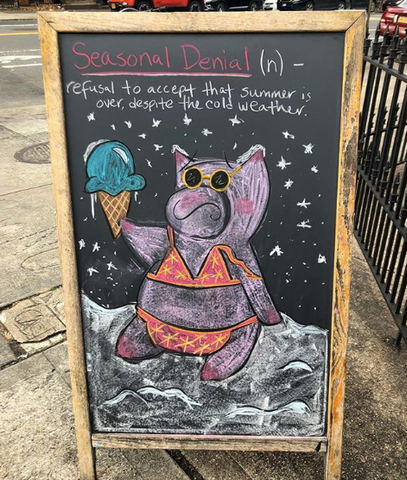 Seasonal Denial (n) -
refusal to accept that summer is
over, despite the cold weather.